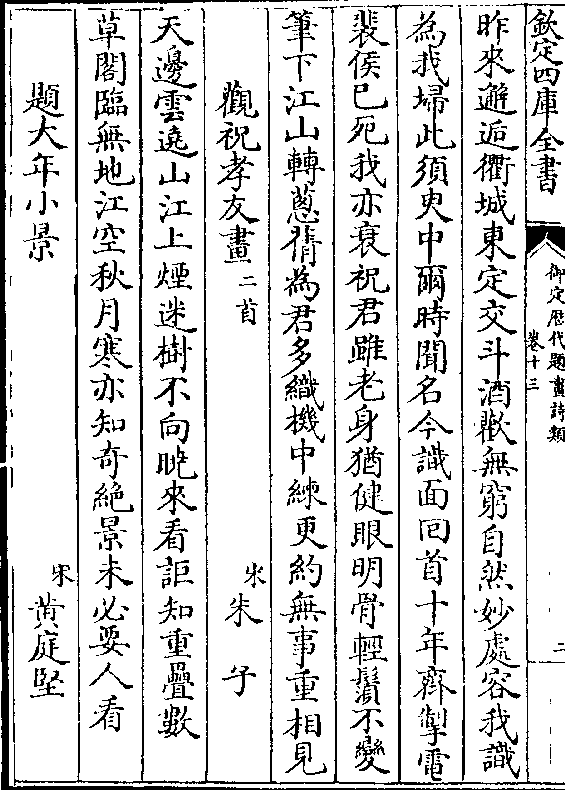 欽定四庫全書
御定歴代題畫詩類
卷十三
二
昨來邂逅衢城東定交斗酒歡無窮自然妙處容我識
為我埽此須臾中爾時聞名今識面回首十年齊掣電
裴侯已死我亦衰祝君雖老身猶健眼明骨輕鬢不變
筆下江山轉蔥蒨為君多織機中練更約無事重相見
觀祝孝友畫二首
宋朱子
天邊雲遶山江上煙迷樹不向晩來看詎知重疊數
草閣臨無地江空秋月寒亦知奇絶景未必要人看
題大年小景
宋黄庭堅